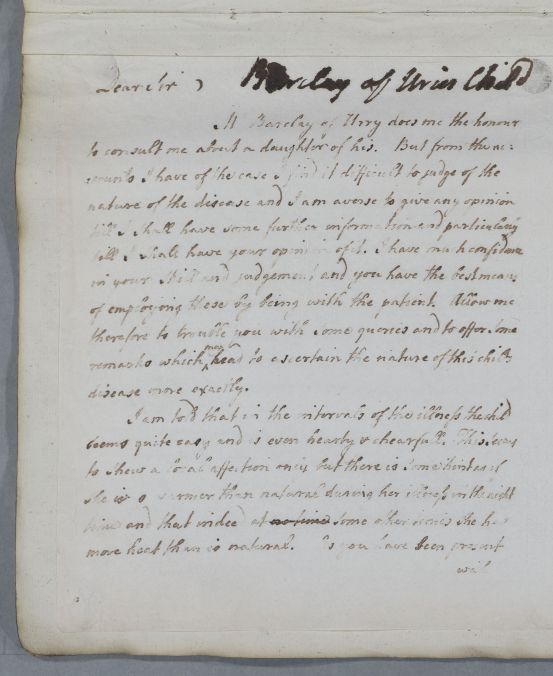 Barclay of Uries Child
Dear Sir
Mr Barclay of Urry does me the honour
to consult me about a daughter of his. But from the ac:
:counts I have of the case I find it difficult to judge of the
nature of the disease and I am averse to give any opinion
till I shall have some further information and particularly
till I shall have your opinion of it. I have much confidence
in your Skill and judgement, and you have the best means
of employing these by being with the patient. Allow me
therefore to trouble you with some queries and to offer some
remarks which may lead to ascertain the nature of this childs
disease more exactly.
I am told that in the intervals of the illness the child
seems quite easy and is even hearty & chearfull. This seems
to shew a local affection only but there is some hint as if
she is warmer than natural during her illness in the night
time and that indeed at no time some other times she has
more heat than is natural. As you have been present
will